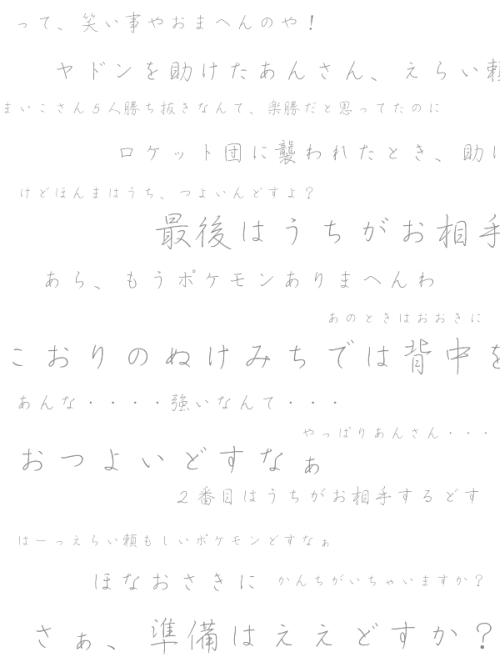 って、笑い事やおまへんのや！
ヤドンを助けたあんさん、えらい頼
まいこさん５人勝ち抜きなんて、楽勝だと思ってたのに
ロケット団に襲われたとき、助け
けどほんまはうち、つよいんどすよ？
最後はうちがお相手
あら、もうポケモンありまへんわ
あのときはおおきに
こおりのぬけみちでは背中を
あんな・・・・強いなんて・・・
やっぱりあんさん・・・
おつよいどすなぁ
２番目はうちがお相手するどす
はーっえらい頼もしいポケモンどすなぁ
ほなおさきに
かんちがいちゃいますか？
さぁ、準備はええどすか？